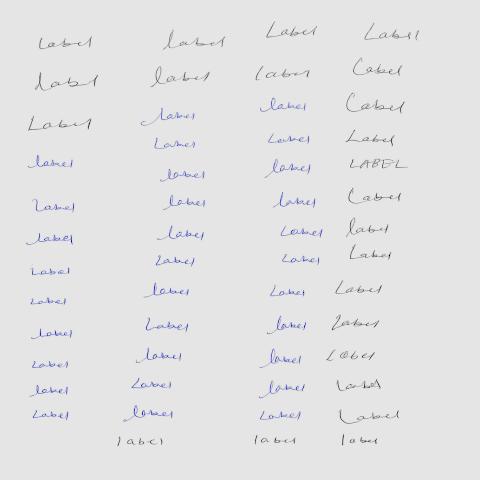 Label label Label Label
label label Label Label
Label label label Label
label Label Label Label
Label label label LABEL
label label label Label
Label label Label label
Label Label Label Label
label label Label Label
Label Label label Label
label label label Label
Label Label label Label
label Label Label
label label label